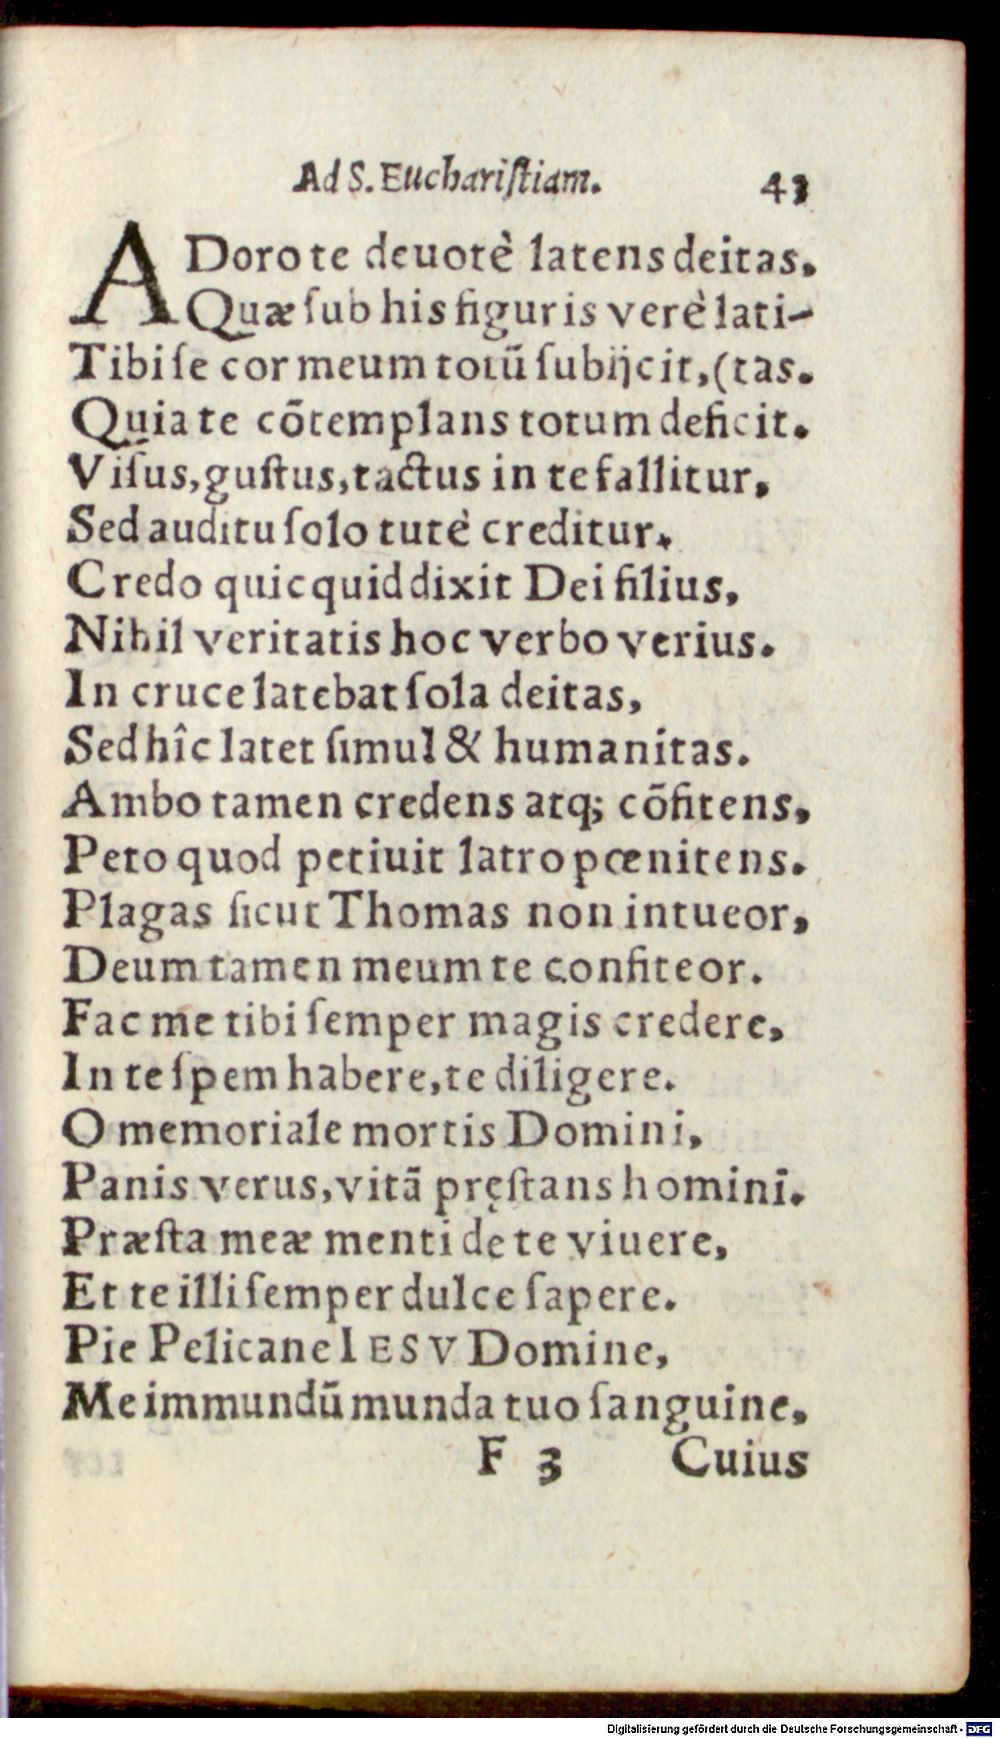 Ad S. Euchariſtiam. 43
ADoro te deuotè latens deitas,
Quæ ſub his figuris verè lati-
Tibi ſe cor meum totũ ſubijcit, (tas.
Quia te cõtemplans totum deficit.
Viſus, guſtus, tactus in te fallitur,
Sed auditu ſolo tutè creditur,
Credo quicquid dixit Dei filius,
Nihil veritatis hoc verbo verius.
In cruce latebat ſola deitas,
Sed hîc latet ſimul & humanitas.
Ambo tamen credens atq; cõfitens,
Peto quod petiuit latro pœnitens.
Plagas ſicut Thomas non intueor,
Deum tamen meum te confiteor.
Fac me tibi ſemper magis credere,
In te ſpem habere, te diligere.
O memoriale mortis Domini,
Panis verus, vitã pręſtans homini.
Præſta meæ menti de te viuere,
Et te illi ſemper dulce ſapere.
Pie Pelicane IESV Domine,
Me immundũ munda tuo ſanguine,
F 3 Cuius
Digitalisierung gefördert durch die Deutsche Forschungsgemeinschaft - DFG